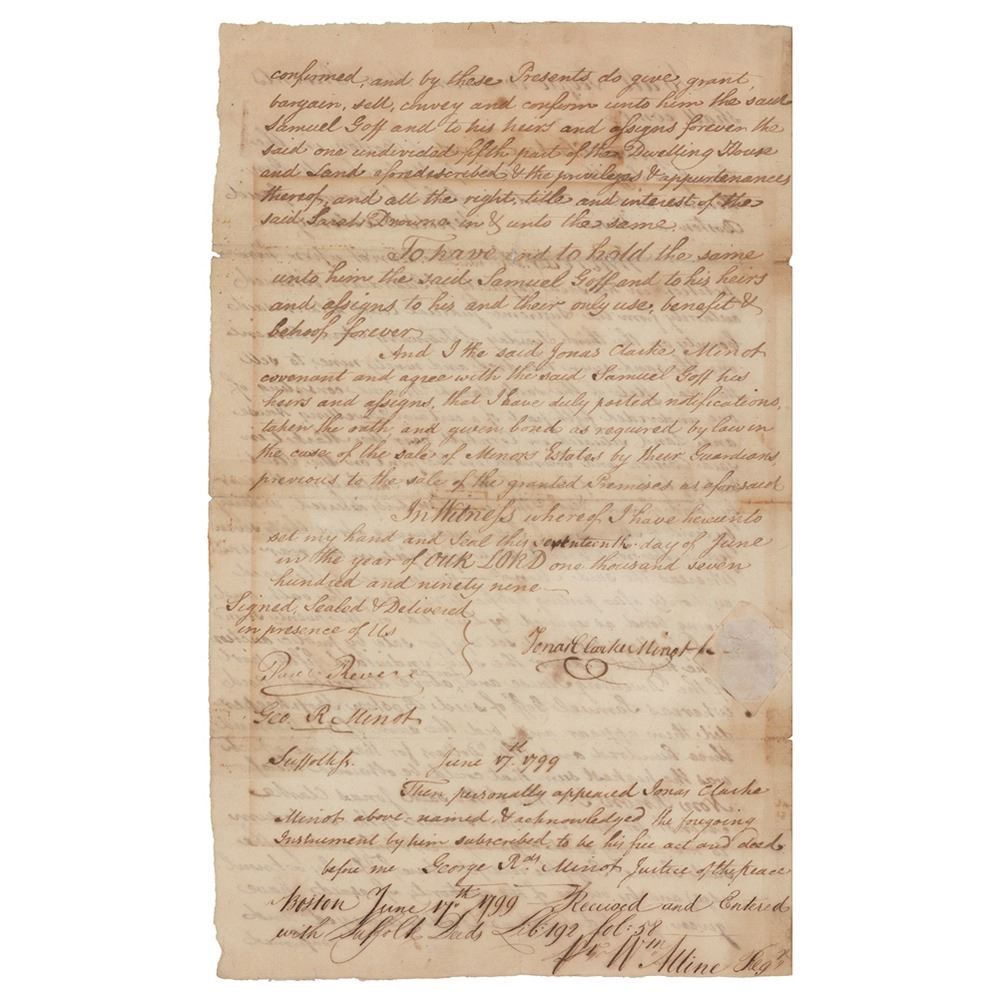 confirmed, and by these Presents do give, grant,
bargain, sell, convey and confirm unto him the said
Samuel Goff and to his heirs and assigns forever the
said one undivided fifth part of the Dwelling House
and Land aforedescribed & the privileges & appurtenances
thereof, and all the right, title and interest of the
said Sarah Drowne in & unto the same.
To have and to hold the same
unto him the said Samuel Goff and to his heirs
and assigns to his and their only use, benefit &
behoof forever
And I the said Jonas Clarke Minot
covenant and agree with the said Samuel Goff his
heirs and assigns, that I have duly posted notifications,
taken the oath and given bond as required by law in
the case of the sale of Minors Estates by their Guardians,
previous to the sale of the granted Premises as aforesaid
In Witness whereof I have hereunto
set my hand and Seal this seventeenth day of June
in the year of OUR LORD one thousand seven
hundred and ninety nine
Signed, Sealed & Delivered
in presence of Us
Jonas Clarke Minot
Paul Revere
Geo. R. Minot
Suffolk ss. June 17th. 1799
Then personally appeared Jonas Clarke
Minot above-named, & acknowledged the foregoing
Instrument by him subscribed to be his free act and deed
before me George Rds Minot Justice of the Peace
Boston June 17th 1799 Received and Entered
with Suffolk Deeds Lib: 192. fol: 58
Wm Alline Regr